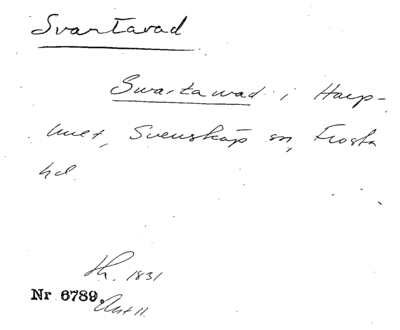 Svartavad
Swartawad i Harp-
hult, Svensköp sn, Frosta
hd.
Lh. 1831
Nr 6789.
Akt 11.